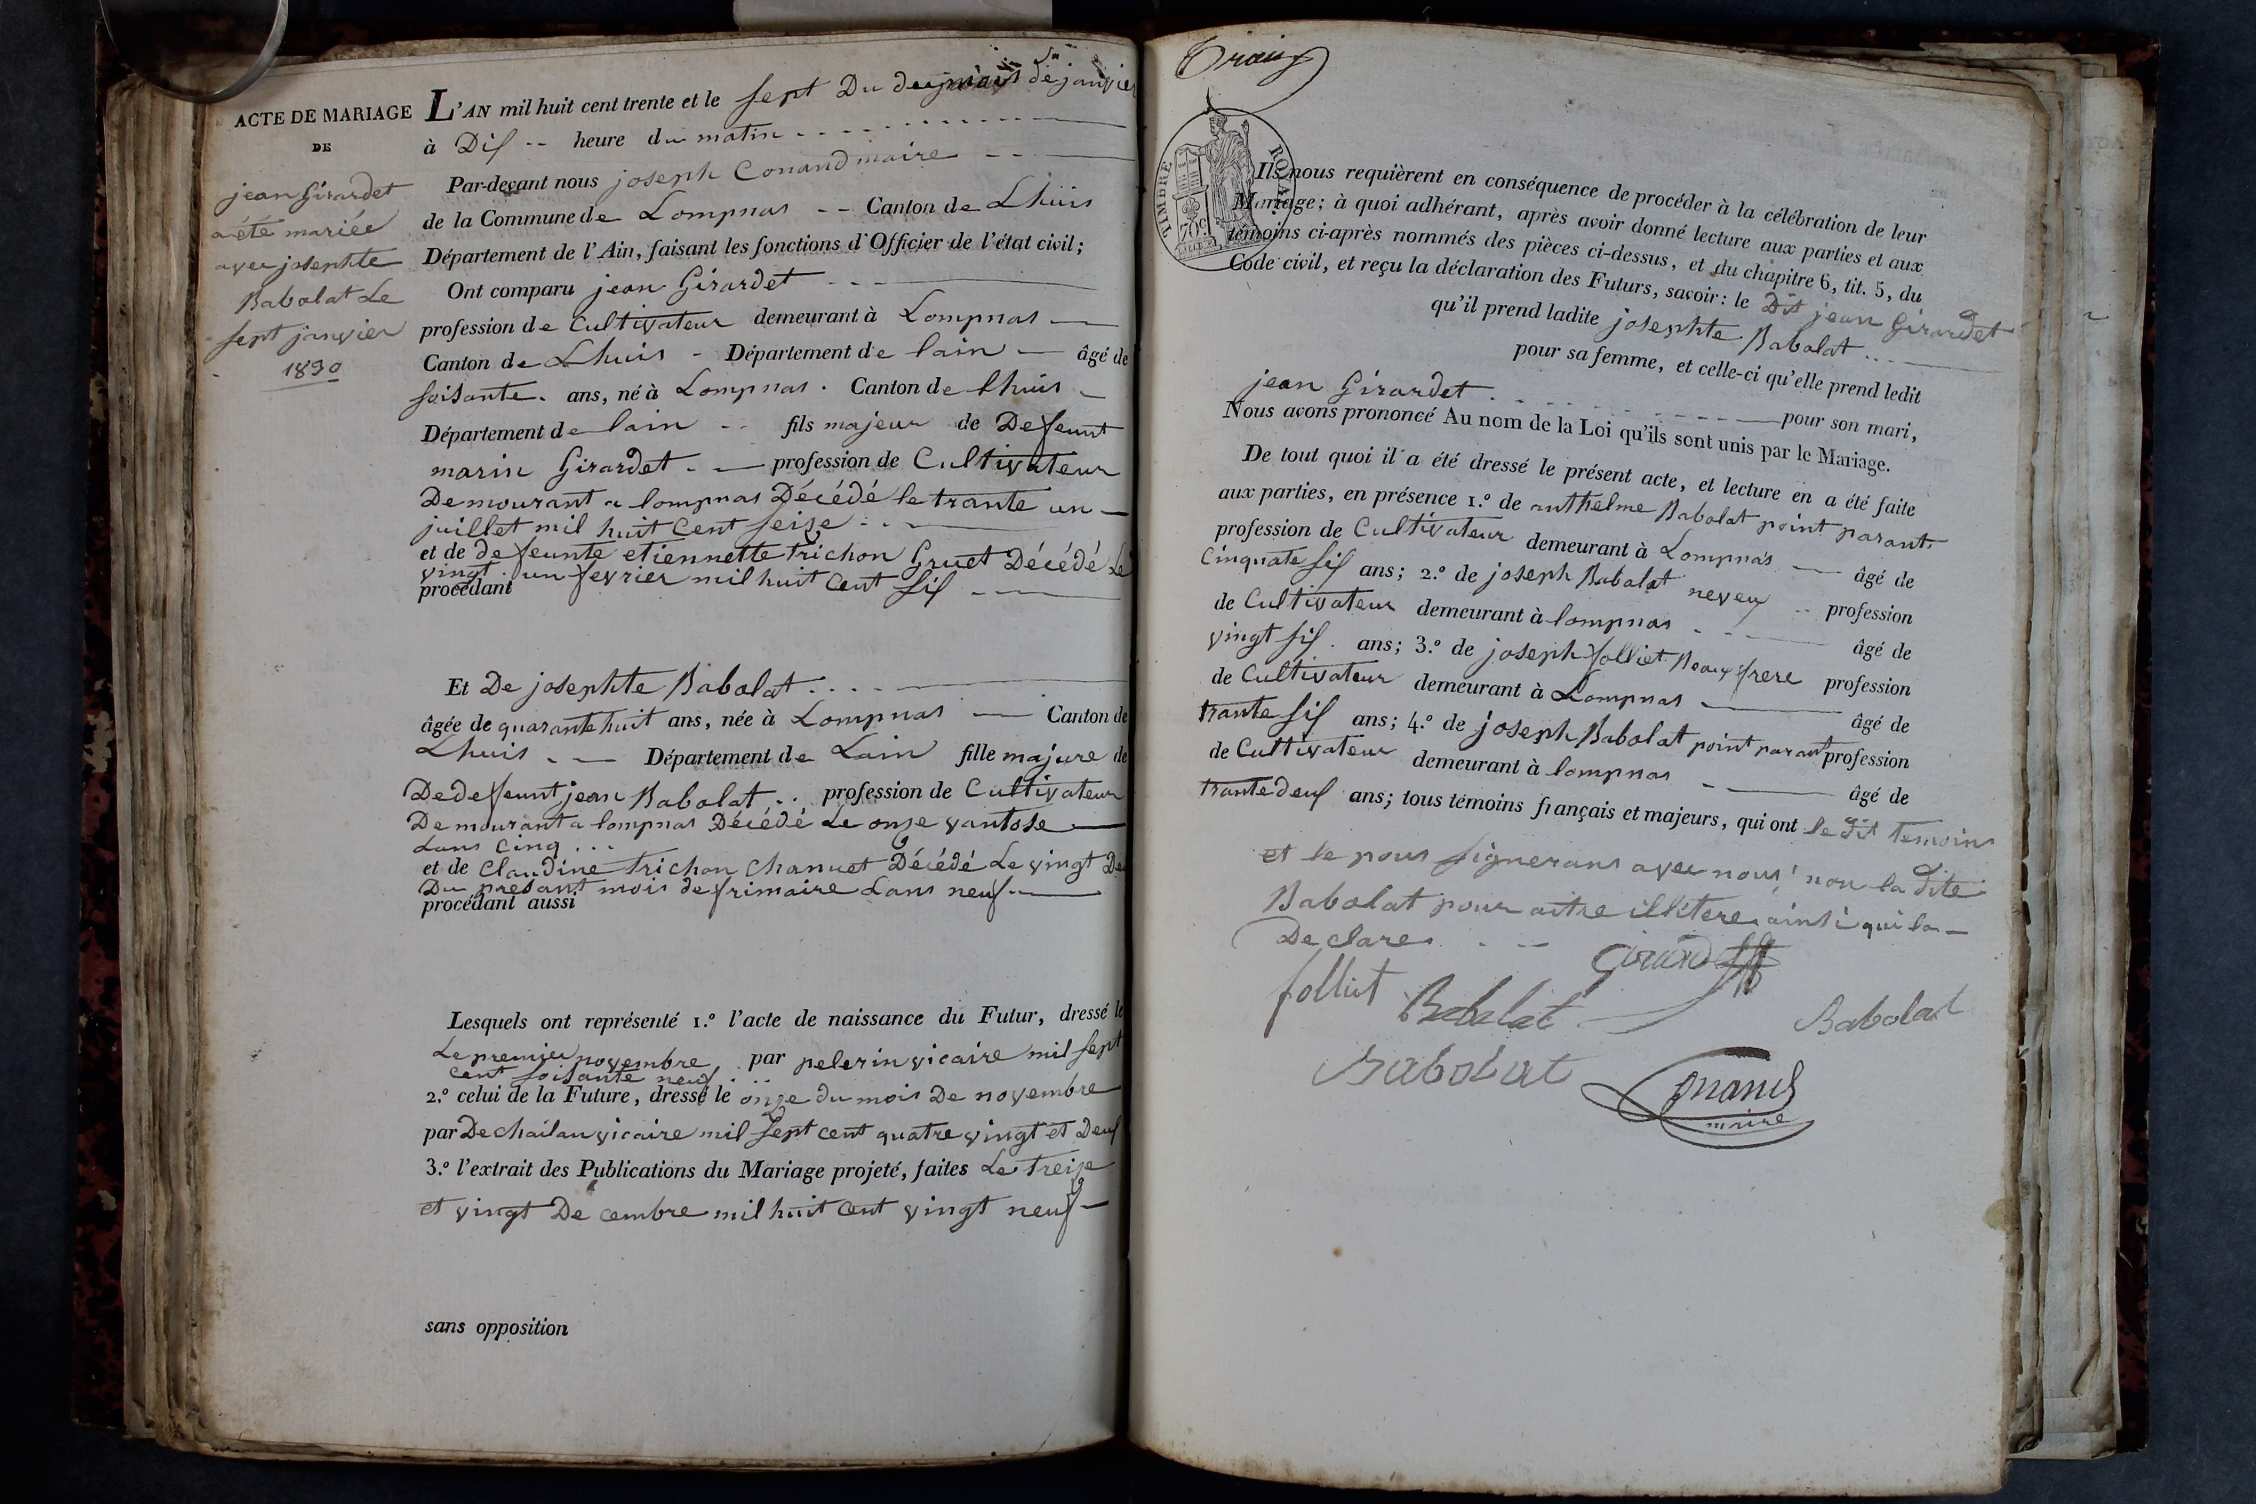 ACTE DE MARIAGE
DE
jean Girardet
a été mariée
avec josephte
Babolat Le
sept janvier
1830
L'AN mil huit cent trente et le sept Du mois de janvier
à Dis heure du matin
Par-devant nous joseph Conand maire
de la Commune de Lompnas Canton de Lhuis
Département de l'Ain, faisant les fonctions d'Officier de l'état civil;
Ont comparu jean Girardet
profession de Cultivateur demeurant à Lompnas
Canton de Lhuis Département de lain âgé de
soisante ans, né à Lompnas Canton de lhuis
Département de lain fils majeur de Defeunt
marin Girardet profession de Cultivateur
Demourant a lompnas Décédé le trante un
juillet mil huit Cent seise
et de defeunte etiennette trichon Gruet Décédé Le
vingt un fevrier mil huit Cent sis
procédant
Et De josephte Babolat
âgée de quarante huit ans, née à Lompnas Canton de
Lhuis Département de Lain fille majure de
De defeunt jean Babolat profession de Cultivateur
Demourant a lompnas Décédé Le onse vantose
Lans cinq
et de Claudine trichon Chanuet Décédé Le vingt De
Du presant mois de frimaire Lans neuf
procédant aussi
Lesquels ont représenté 1.º l'acte de naissance du Futur, dressé le
Le premier novembre par pelerin vicaire mil sept
cent soisante neuf
2.º celui de la Future, dressé le onze du mois De novembre
par Dechailan vicaire mil sept cent quatre vingt et Deus
3.º l'extrait des Publications du Mariage projeté, faites Le treize
et vingt De cembre mil huit Cent vingt neuf
sans opposition
TIMBRE ROYAL
70 c
Ils nous requièrent en conséquence de procéder à la célébration de leur
Mariage; à quoi adhérant, après avoir donné lecture aux parties et aux
témoins ci-après nommés des pièces ci-dessus, et du chapitre 6, tit. 5, du
Code civil, et reçu la déclaration des Futurs, savoir: le Dit jean Girardet
qu'il prend ladite josephte Babolat
pour sa femme, et celle-ci qu'elle prend ledit
jean Girardet pour son mari,
Nous avons prononcé Au nom de la Loi qu'ils sont unis par le Mariage.
De tout quoi il a été dressé le présent acte, et lecture en a été faite
aux parties, en présence 1.º de anthelme Babolat point parant
profession de Cultivateur demeurant à Lompnas âgé de
Cinquate sis ans; 2.º de joseph Babolat neveu profession
de Cultivateur demeurant à lompnas âgé de
vingt sis ans; 3.º de joseph folliet Beaux frere profession
de Cultivateur demeurant à Lompnas âgé de
trante sis ans; 4.º de joseph Babolat point parant profession
de Cultivateur demeurant à lompnas âgé de
trante deus ans; tous témoins français et majeurs, qui ont le dit temoins
et le pous signerans avec nous! non la dite
Babolat pour aitre illitere ainsi qui la
Declare
Girardet
folliet Babolat Babolat
Babolat Conand
maire